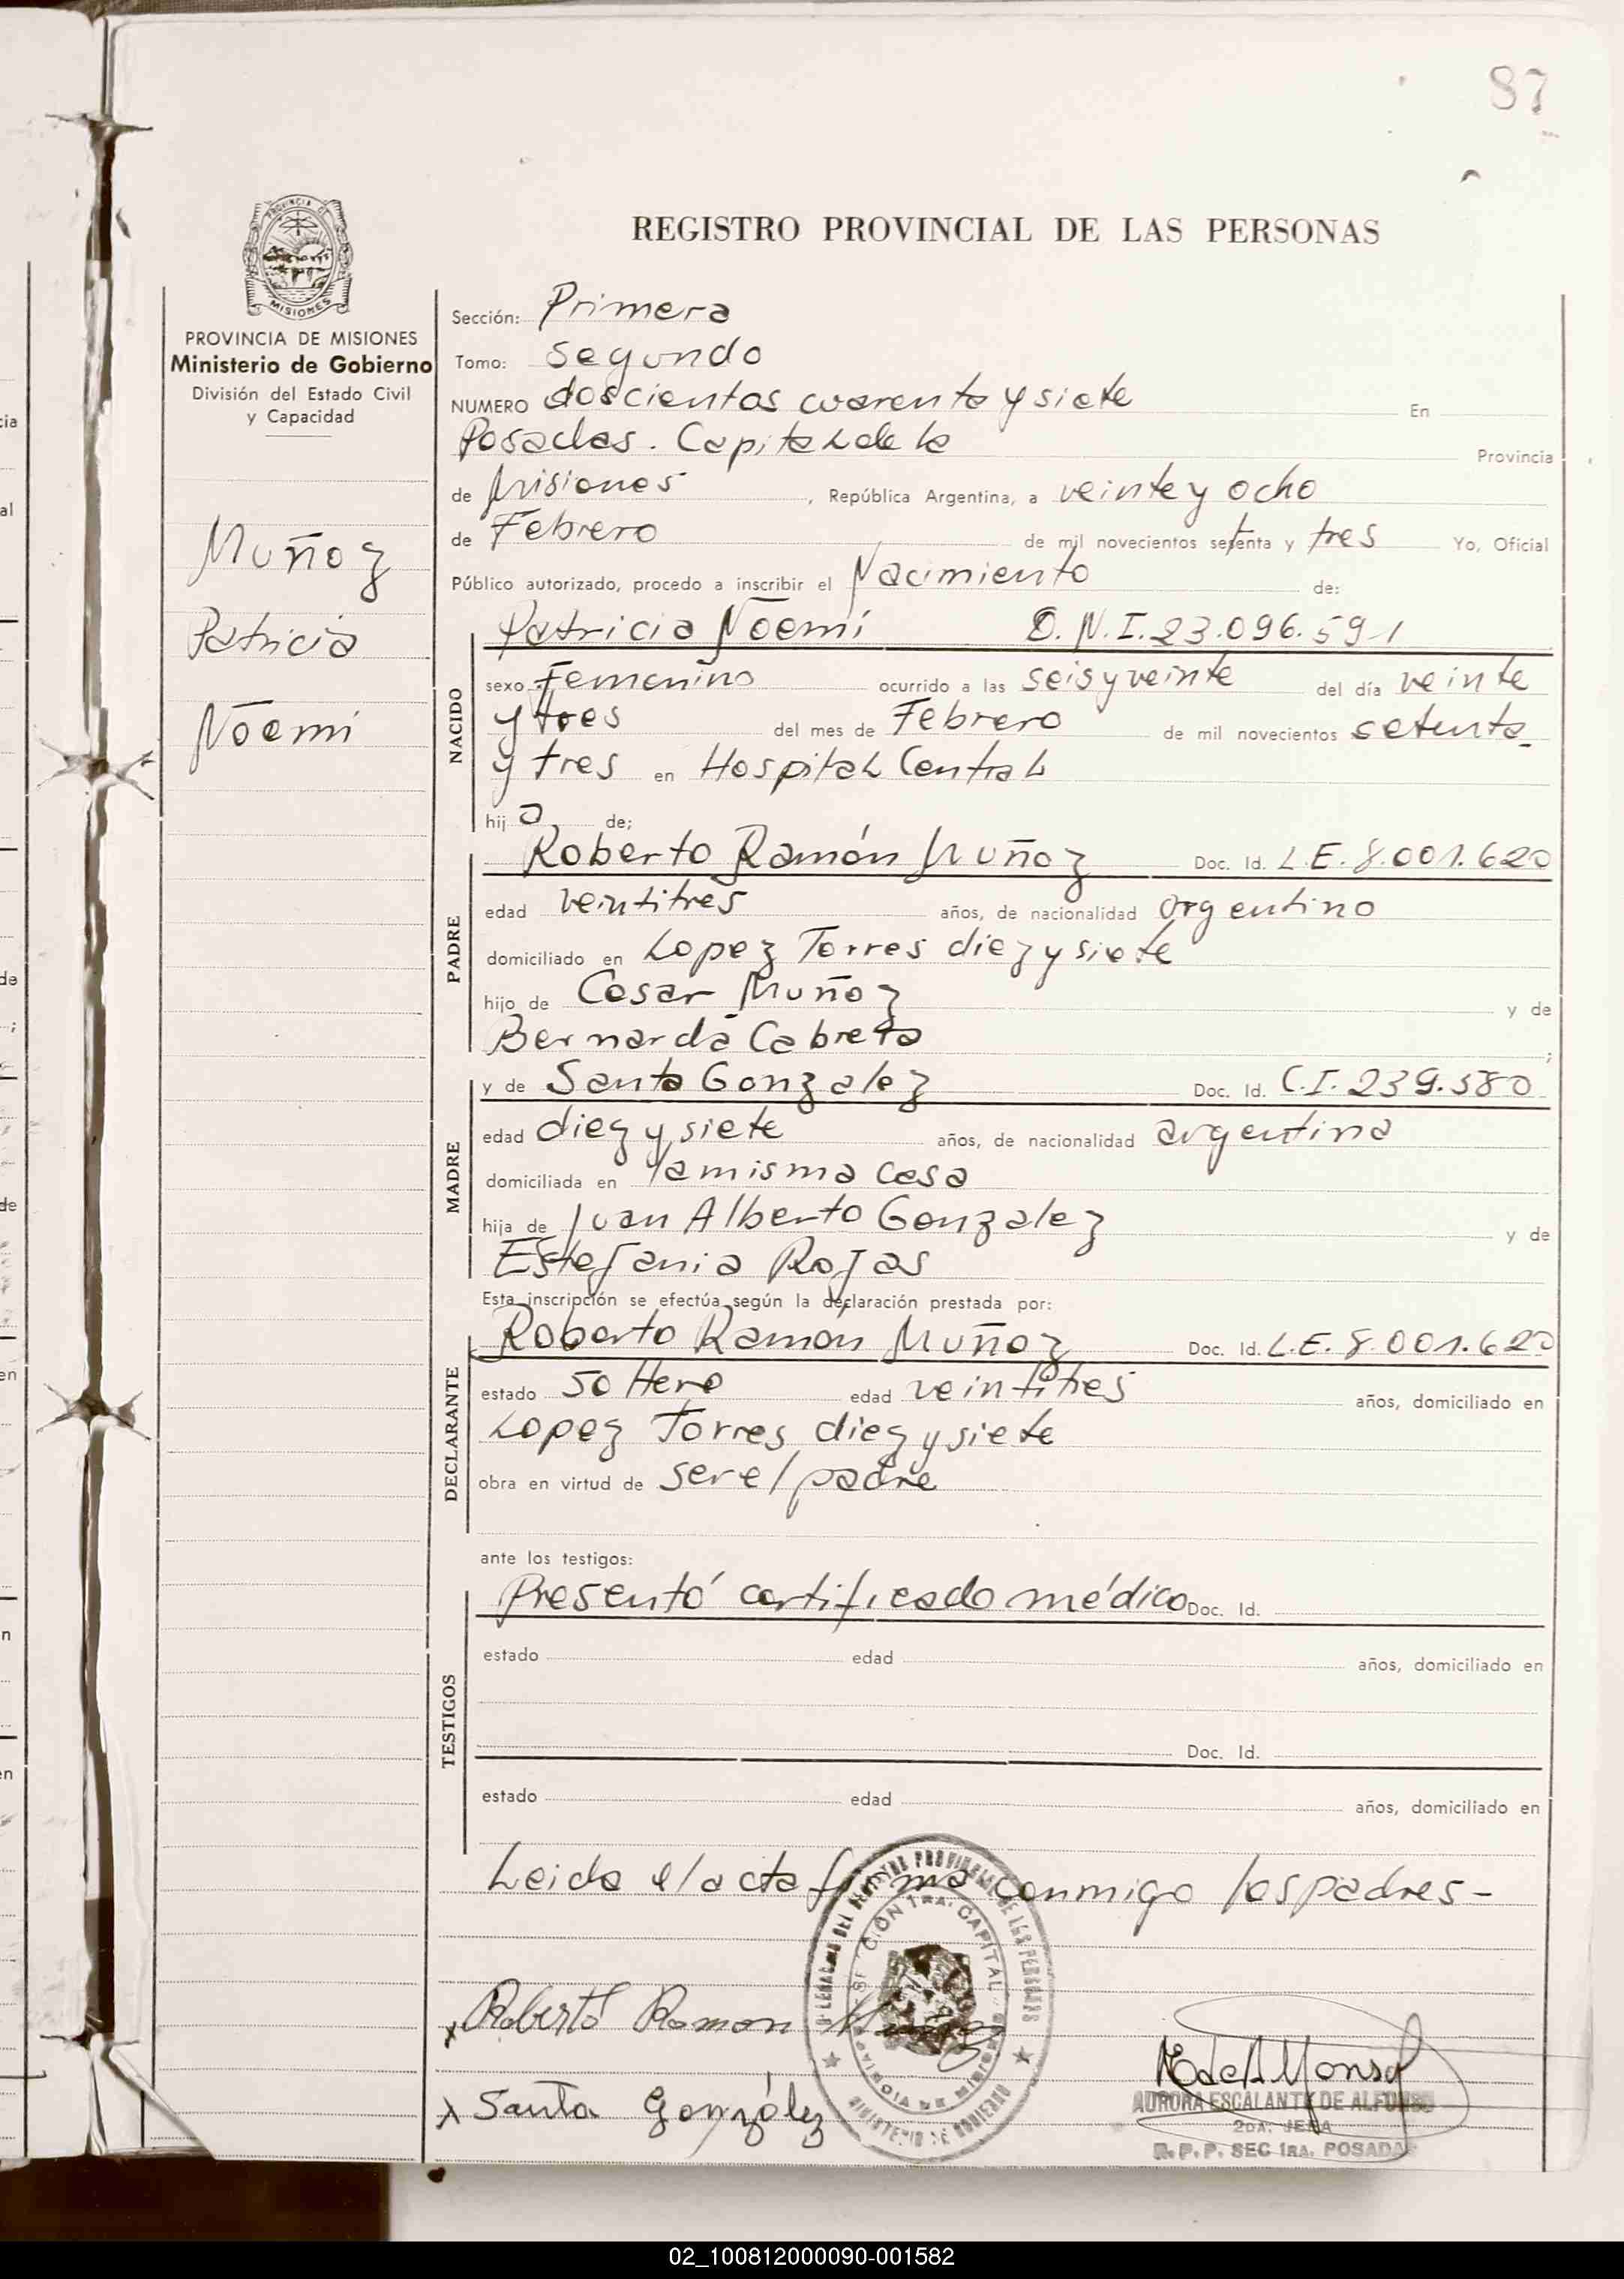 87
REGISTRO PROVINCIAL DE LAS PERSONAS
PROVINCIA DE
MISIONES
PROVINCIA DE MISIONES
Ministerio de Gobierno
División del Estado Civil
y Capacidad
Muñoz
Patricia
Noemi
Sección: Primera
Tomo: segundo
NUMERO doscientos cuarenta y siete En
Posadas. Capital de la Provincia
de Misiones, República Argentina, a veinte y ocho
de Febrero de mil novecientos setenta y tres Yo, Oficial
Público autorizado, procedo a inscribir el Nacimiento de:
NACIDO
Patricia Noemí D.N.I. 23.096.591
sexo Femenino ocurrido a las seis y veinte del día veinte
y tres del mes de Febrero de mil novecientos setenta
y tres en Hospital Central
hij a de;
PADRE
Roberto Ramón Muñoz Doc. Id. L.E. 8.001.620
edad veintitres años, de nacionalidad argentino
domiciliado en Lopez Torres diez y siete
hijo de Cesar Muñoz y de
Bernarda Cabrera;
MADRE
y de Santa Gonzalez Doc. Id. C.I. 239.580
edad diez y siete años, de nacionalidad argentina
domiciliada en la misma casa
hija de Juan Alberto Gonzalez y de
Estefania Rojas
Esta inscripción se efectúa según la declaración prestada por:
DECLARANTE
Roberto Ramón Muñoz Doc. Id. L.E. 8.001.620
estado soltero edad veintitres años, domiciliado en
Lopez Torres diez y siete
obra en virtud de ser el padre
ante los testigos:
TESTIGOS
Presentó certificado médico Doc. Id.
estado edad años, domiciliado en
Doc. Id.
estado edad años, domiciliado en
Leida el acta firma conmigo los padres-
DEL REGISTRO PROVINCIAL DE LAS PERSONAS
SECCION 1RA. CAPITAL
PROVINCIA DE MISIONES
MINISTERIO DE GOBIERNO
x Roberto Ramon Muñoz
x Santa González
AURORA ESCALANTE DE ALFONSO
2DA. JEFA
R.P.P. SEC 1RA. POSADAS
02_100812000090-001582